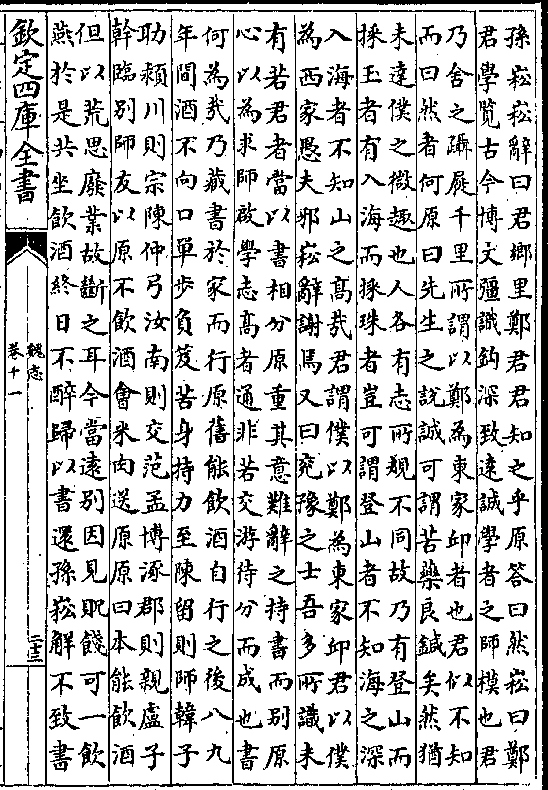 孫崧崧辭曰君鄉里鄭君君知之乎原答曰然崧曰鄭
君學覽古今博文彊識鈎深致遠誠學者之師模也君
乃舍之躡屣千里所謂以鄭為東家邱者也君似不知
而曰然者何原曰先生之說誠可謂苦藥良鍼矣然猶
未達僕之微趣也人各有志所規不同故乃有登山而
採玉者有入海而採珠者豈可謂登山者不知海之深
入海者不知山之高哉君謂僕以鄭為東家邱君以僕
為西家愚夫邪崧辭謝焉又曰兗豫之士吾多所識未
有若君者當以書相分原重其意難辭之持書而別原
心以為求師啟學志高者通非若交游待分而成也書
何為哉乃藏書於家而行原舊能飲酒自行之後八九
年間酒不向口單步負笈苦身持力至陳留則師韓子
助潁川則宗陳仲弓汝南則交范孟博涿郡則親盧子
幹臨別師友以原不飲酒會米肉送原原曰本能飲酒
但以荒思廢業故斷之耳今當遠別因見貺餞可一飲
燕於是共坐飲酒終日不醉歸以書還孫崧解不致書
欽定四庫全書
魏志
卷十一
二十三